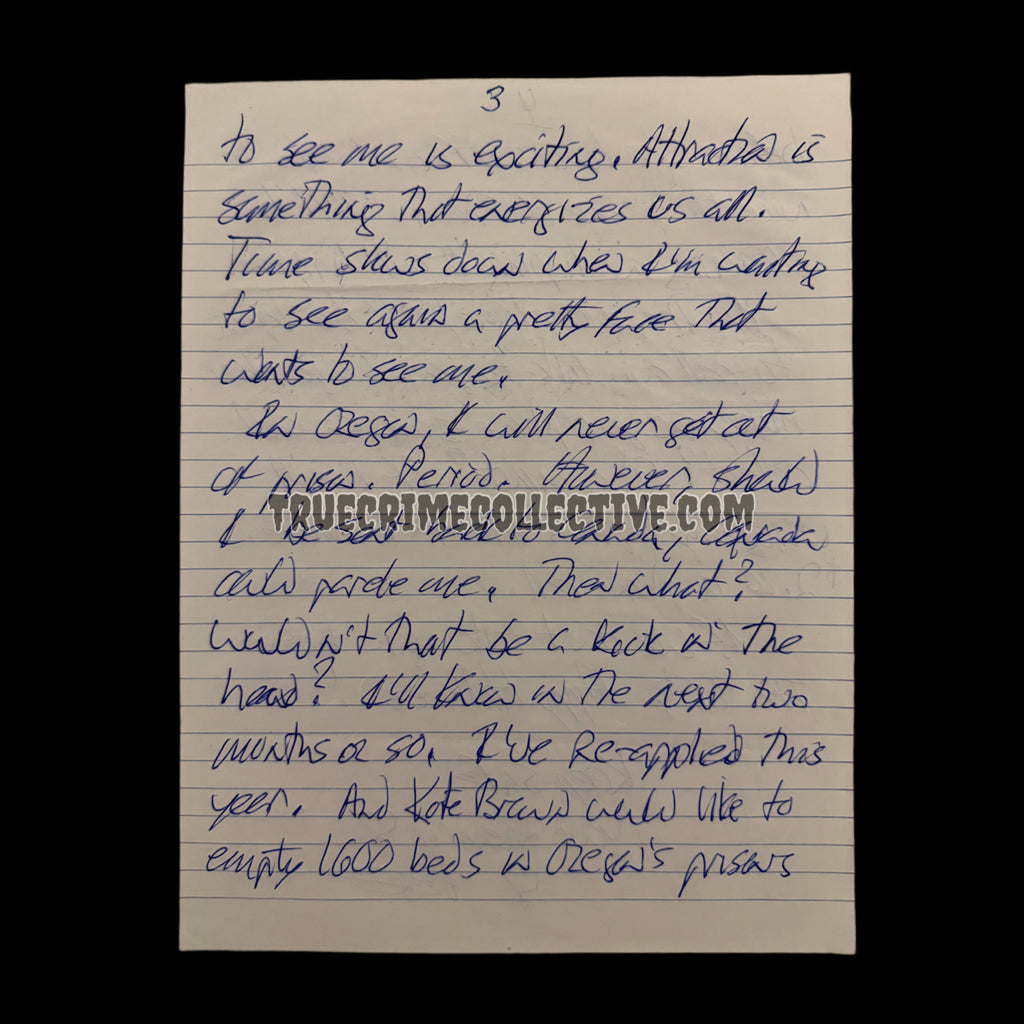 3
to see me is exciting. Attraction is
something that energizes us all.
Time slows down when I'm wanting
to see again a pretty face that
wants to see me.
In Oregon, I will never get out
of prison. Period. However, should
TRUECRIMECOLLECTIVE.COM
I be sent back to Canada, Canada
could parole me. Then what?
Wouldn't that be a kick in the
head? I'll know in the next two
months or so. I've Re-applied this
year. And Kate Brown would like to
empty 1600 beds in Oregon's prisons